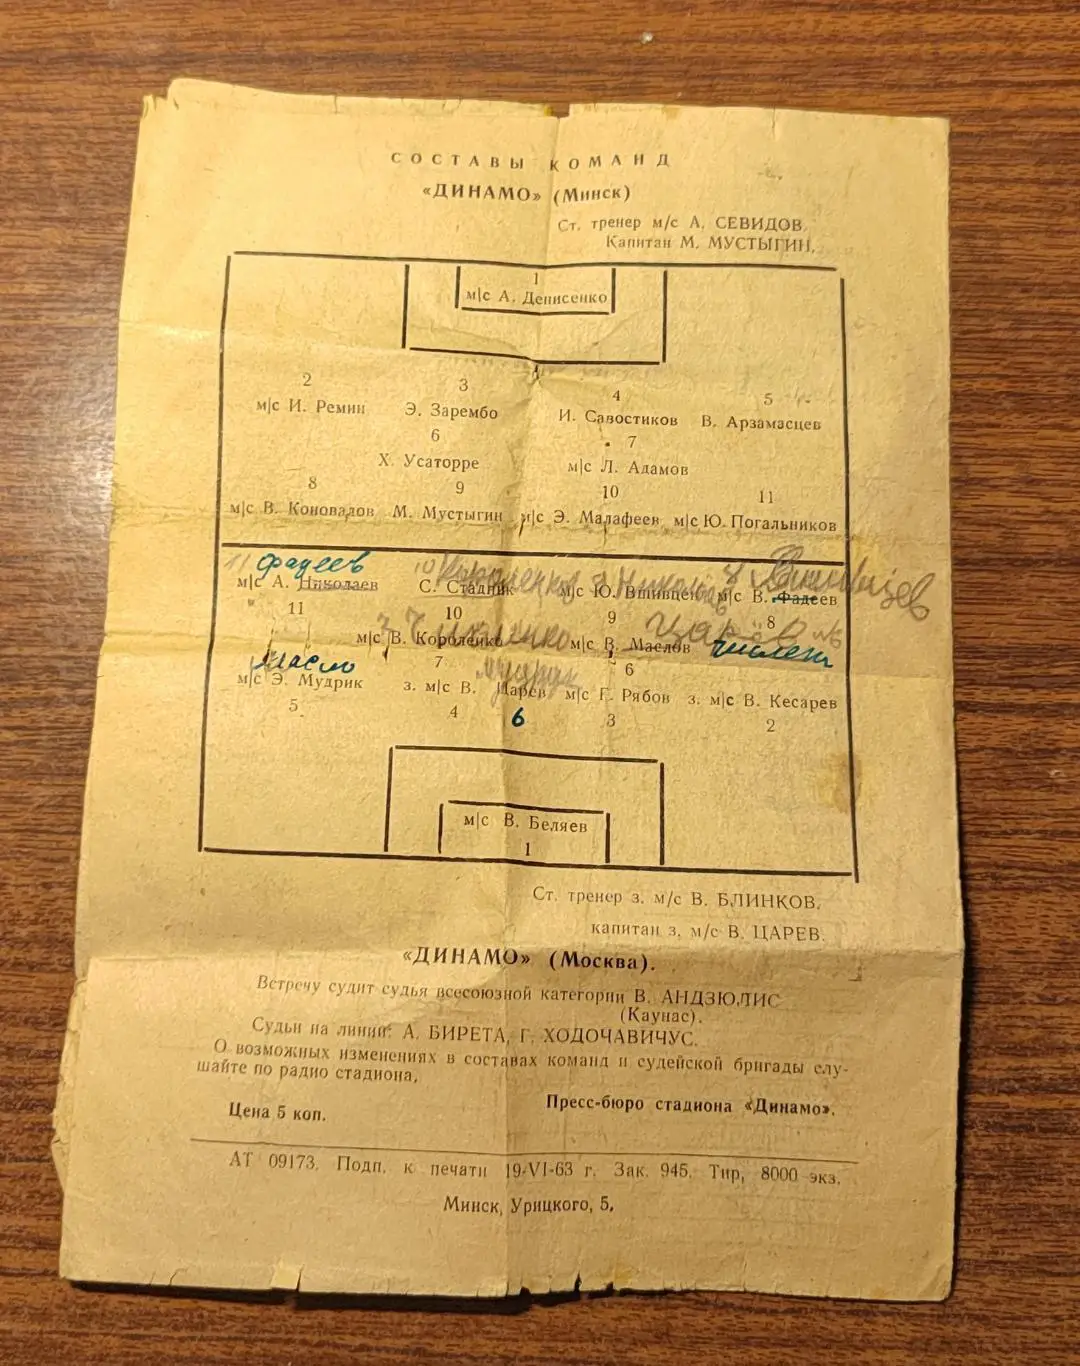 СОСТАВЫ КОМАНД
«ДИНАМО» (Минск)
Ст. тренер м/с А. СЕВИДОВ.
Капитан М. МУСТЫГИН.
1
м/с А. Денисенко
2 3 4 5
м/с И. Ремин Э. Зарембо И. Савостиков В. Арзамасцев
6 7
Х. Усаторре м/с Л. Адамов
8 9 10 11
м/с В. Коновалов М. Мустыгин м/с Э. Малафеев м/с Ю. Погальников
11 фадеев 10 Короленков 9 Николаев 8 Вшивцев
м/с А. Николаев С. Стадник м/с Ю. Вшивцев м/с В. Фадеев
11 10 9 8
Царёв №6
м/с В. Короленко м/с В. Маслов
7 6
Масло Мудрик
м/с Э. Мудрик з. м/с В. Царев м/с Г. Рябов з. м/с В. Кесарев
5 4 6 3 2
м/с В. Беляев
1
Ст. тренер з. м/с В. БЛИНКОВ.
капитан з. м/с В. ЦАРЕВ.
«ДИНАМО» (Москва).
Встречу судит судья всесоюзной категории В. АНДЗЮЛИС
(Каунас).
Судьи на линии: А. БИРЕТА, Г. ХОДОЧАВИЧУС.
О возможных изменениях в составах команд и судейской бригады слу-
шайте по радио стадиона.
Цена 5 коп. Пресс-бюро стадиона «Динамо».
АТ 09173. Подп. к печати 19-VI-63 г. Зак. 945. Тир, 8000 экз.
Минск, Урицкого, 5.